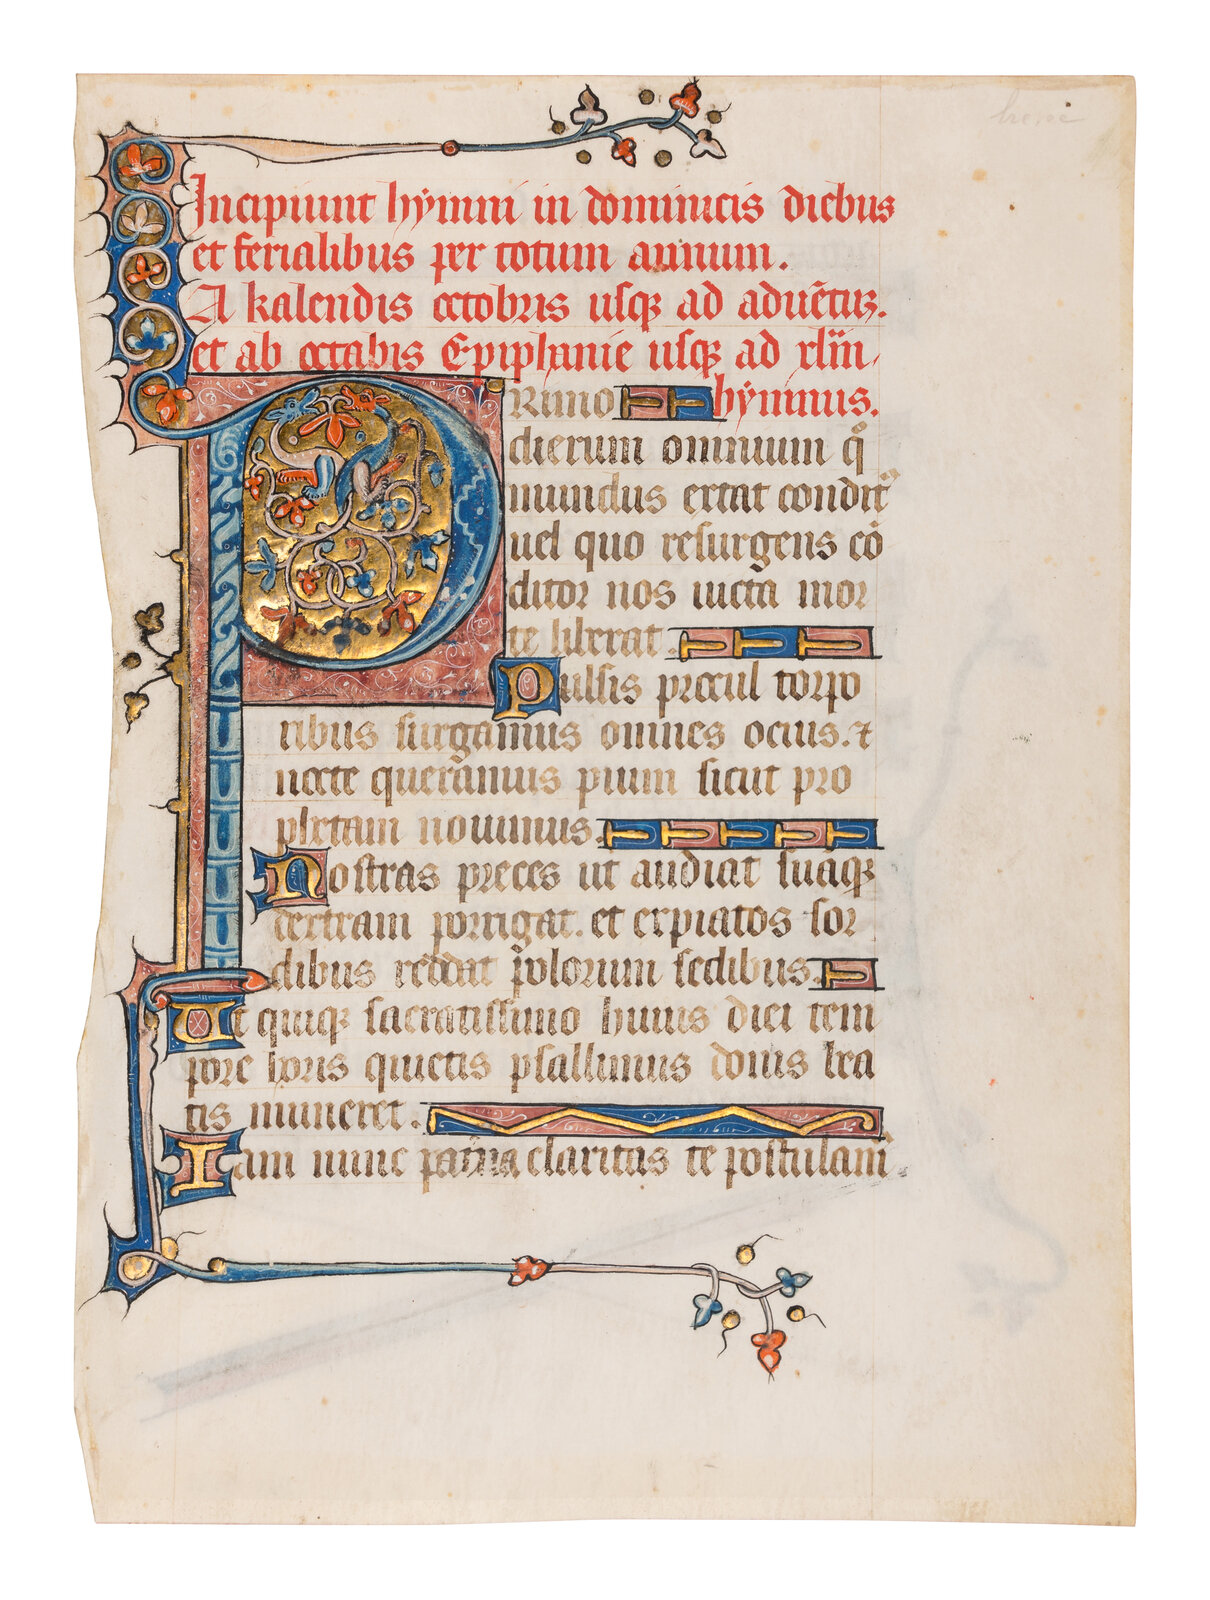 Incipiunt hẏmni in dominicis diebus
et ferialibus per totum annum.
A kalendis octobris usq̃ ad aduẽtuz.
et ab octabis Epiphanie usq̃ ad xlm̃
PRimo hẏmnus.
dierum omnium q̃
mundus extat condit᷒
uel quo resurgens cõ
ditor nos uicta mor
te liberat.
Pulsis procul torpo
ribus surgamus omnes ocius. ⁊
nocte queramus pium sicut pro
phetam nouimus.
Nostras preces ut audiat suaq̃
dextram porrigat. et expiatos sor
dibus reddat polorum sedibus.
Ut quiq̃ sacratissimo huius diei tem
pore horis quietis psallimus donis bea
tis muneret.
Iam nunc pat̃na claritas te postulam᷒